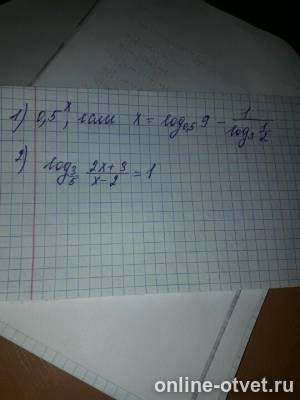 1) 0,5ˣ, если x = log₀,₅ 9 − 1/(log₃ 1/2)
2) log_{3/5} (2x+3)/(x−2) = 1
online-otvet.ru